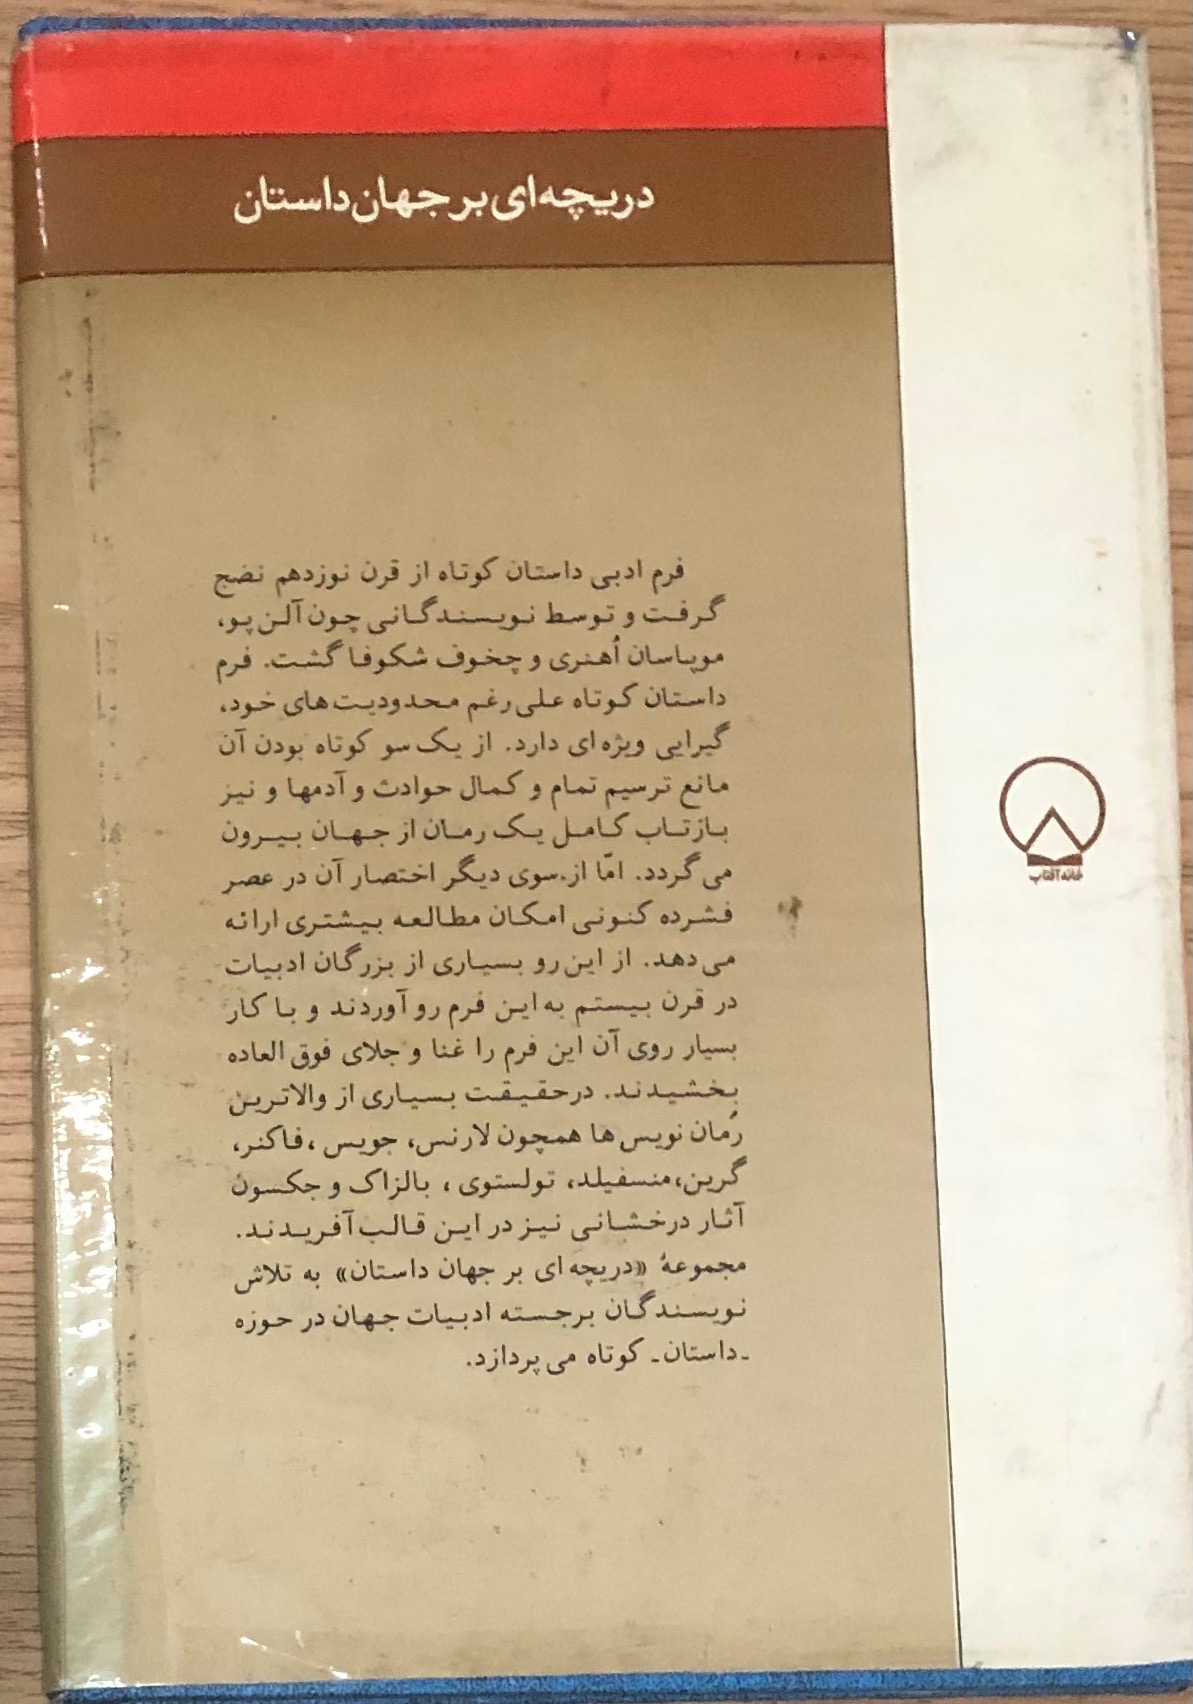 دریچه‌ای بر جهان داستان
فرم ادبی داستان کوتاه از قرن نوزدهم نضج
گرفت و توسط نویسندگانی چون آلن پو،
موپاسان اُهنری و چخوف شکوفا گشت. فرم
داستان کوتاه علی رغم محدودیت های خود،
گیرایی ویژه ای دارد. از یک سو کوتاه بودن آن
مانع ترسیم تمام و کمال حوادث و آدمها و نیز
بازتاب کامل یک رمان از جهان بیرون
می گردد. امّا از سوی دیگر اختصار آن در عصر
فشرده کنونی امکان مطالعه بیشتری ارائه
می دهد. از این رو بسیاری از بزرگان ادبیات
در قرن بیستم به این فرم رو آوردند و با کار
بسیار روی آن این فرم را غنا و جلای فوق العاده
بخشیدند. درحقیقت بسیاری از والاترین
رُمان نویس ها همچون لارنس، جویس، فاکنر،
گرین، منسفیلد، تولستوی، بالزاک و جکسون
آثار درخشانی نیز در این قالب آفریدند.
مجموعهٔ «دریچه ای بر جهان داستان» به تلاش
نویسندگان برجسته ادبیات جهان در حوزه
ـ داستان ـ کوتاه می پردازد.
خانه آفتاب